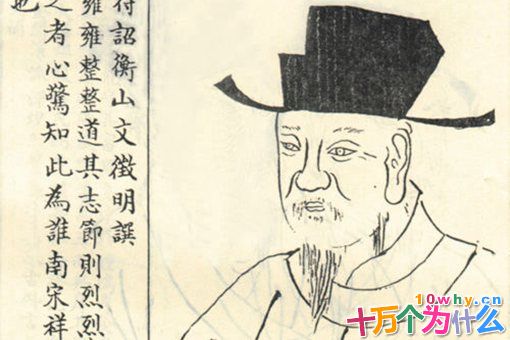 待詔衡山文徵明譔
雍雍整整道其志節則烈烈
之者心驚知此為誰南宋祥
也
10why.cn
十万个为什么